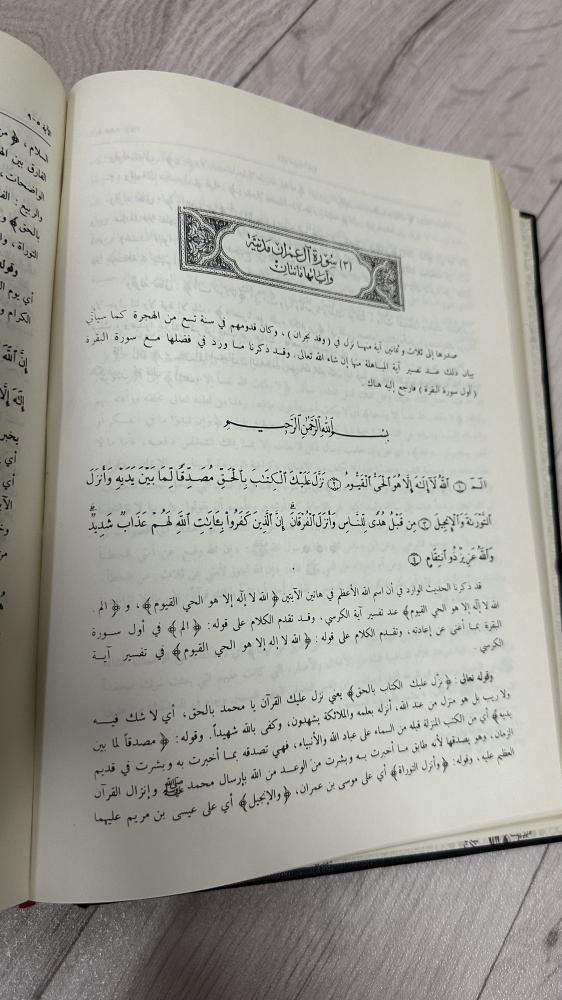 (٣) سُورَةُ آلِ عِمْرَانَ مَدَنِيَّة
وَآيَاتُهَا مَائَتَانِ
صدرها إلى ثلاث وثمانين آية منها نزل في ( وفد نجران ) ، وكان قدومهم في سنة تسع من الهجرة كما سيأتي
بيان ذلك عند تفسير آية المباهلة منها إن شاء الله تعالى ، وقد ذكرنا ما ورد في فضلها مع سورة البقرة
( أول سورة البقرة ) فارجع إليه هناك .
بِسْمِ اللَّهِ الرَّحْمَنِ الرَّحِيمِ
الٓمٓ ۝١ ٱللَّهُ لَآ إِلَٰهَ إِلَّا هُوَ ٱلْحَىُّ ٱلْقَيُّومُ ۝٢ نَزَّلَ عَلَيْكَ ٱلْكِتَٰبَ بِٱلْحَقِّ مُصَدِّقًا لِّمَا بَيْنَ يَدَيْهِ وَأَنزَلَ
ٱلتَّوْرَىٰةَ وَٱلْإِنجِيلَ ۝٣ مِن قَبْلُ هُدًى لِّلنَّاسِ وَأَنزَلَ ٱلْفُرْقَانَ ۗ إِنَّ ٱلَّذِينَ كَفَرُوا۟ بِـَٔايَٰتِ ٱللَّهِ لَهُمْ عَذَابٌ شَدِيدٌ ۗ
وَٱللَّهُ عَزِيزٌ ذُو ٱنتِقَامٍ ۝٤
قد ذكرنا الحديث الوارد في أن اسم الله الأعظم في هاتين الآيتين ﴿الله لا إله إلا هو الحي القيوم﴾ ، و ﴿ الم .
الله لا إله إلا هو الحي القيوم﴾ عند تفسير آية الكرسي ، وقد تقدم الكلام على قوله : ﴿ الم ﴾ في أول سورة
البقرة بما أغنى عن إعادته ، وتقدم الكلام على قوله : ﴿ الله لا إله إلا هو الحي القيوم﴾ في تفسير آية
الكرسي .
وقوله تعالى : ﴿نزّل عليك الكتاب بالحق﴾ يعني نزل عليك القرآن يا محمد بالحق ، أي لا شك فيه
ولا ريب بل هو منزل من عند الله ، أنزله بعلمه والملائكة يشهدون ، وكفى بالله شهيداً . وقوله : ﴿ مصدقاً لما بين
يديه﴾ أي من الكتب المنزلة قبله من السماء على عباد الله والأنبياء ، فهي تصدقه بما أخبرت به وبشرت في قديم
الزمان ، وهو يصدقها لأنه طابق ما أخبرت به وبشرت من الوعد من الله بإرسال محمد ﷺ وإنزال القرآن
العظيم عليه ، وقوله : ﴿وأنزل التوراة﴾ أي على موسى بن عمران ، ﴿والإنجيل﴾ أي على عيسى بن مريم عليهما
الآية ٥-٩
السلام ،
الفارق بين
الواضحات ،
والربيع :
بالحق﴾
التوراة ،
وقوله
أي يوم
الكرام
إِنَّ ٱللَّهَ
إِلَٰهَ إِلَّا
يخبر